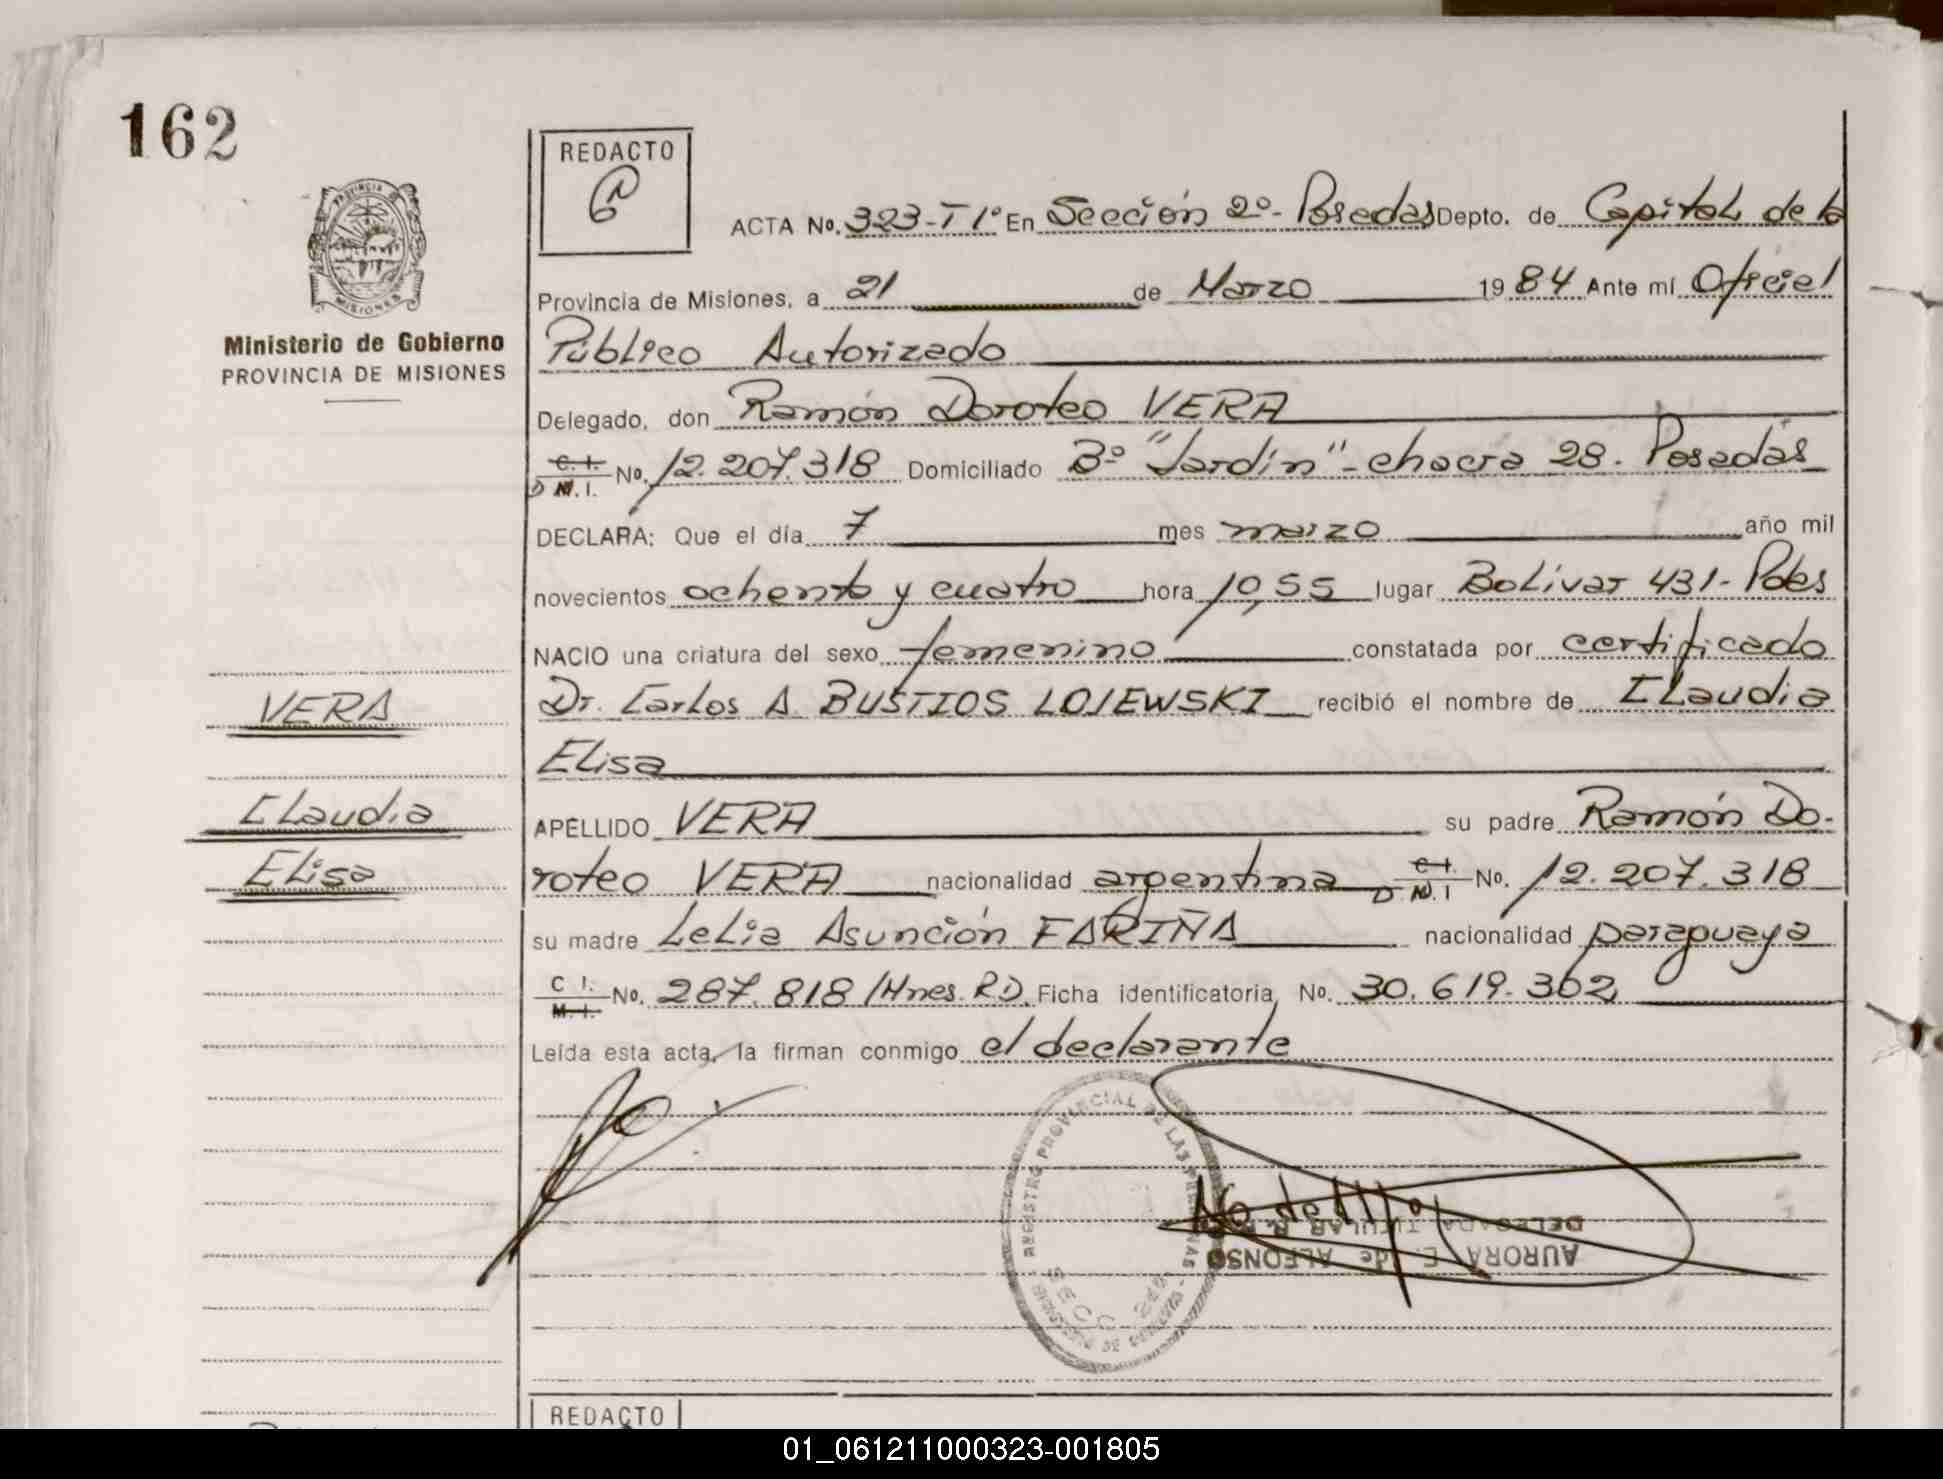 162
REDACTO
PROVINCIA DE
MISIONES
Ministerio de Gobierno
PROVINCIA DE MISIONES
ACTA No. 323-T1º En Sección 2º- Posadas Depto. de Capital de la
Provincia de Misiones, a 21 de Marzo 1984 Ante mí Oficial
Público Autorizado
Delegado, don Ramón Doroteo VERA
C. I.
D N. I. No. 12.207.318 Domiciliado Bº "Jardín" - chacra 28. Posadas
DECLARA: Que el día 7 mes marzo año mil
novecientos ochenta y cuatro hora 10,55 lugar Bolívar 431- Pdas
NACIO una criatura del sexo femenino constatada por certificado
Dr. Carlos A. BUSTIOS LOJEWSKI recibió el nombre de Claudia
Elisa
APELLIDO VERA su padre Ramón Do-
roteo VERA nacionalidad argentina C. I.
D. N. I No. 12.207.318
su madre Lelia Asunción FARIÑA nacionalidad paraguaya
C I.
M. I. No. 287.818/Mnes. R.D. Ficha identificatoria No. 30.619.302
Leída esta acta, la firman conmigo el declarante
VERA
Claudia
Elisa
REGISTRO PROVINCIAL DE LAS PERSONAS
SECC. 2da
AURORA E. de ALFONSO
DELEGADA TITULAR R. P. P.
REDACTO
01_061211000323-001805